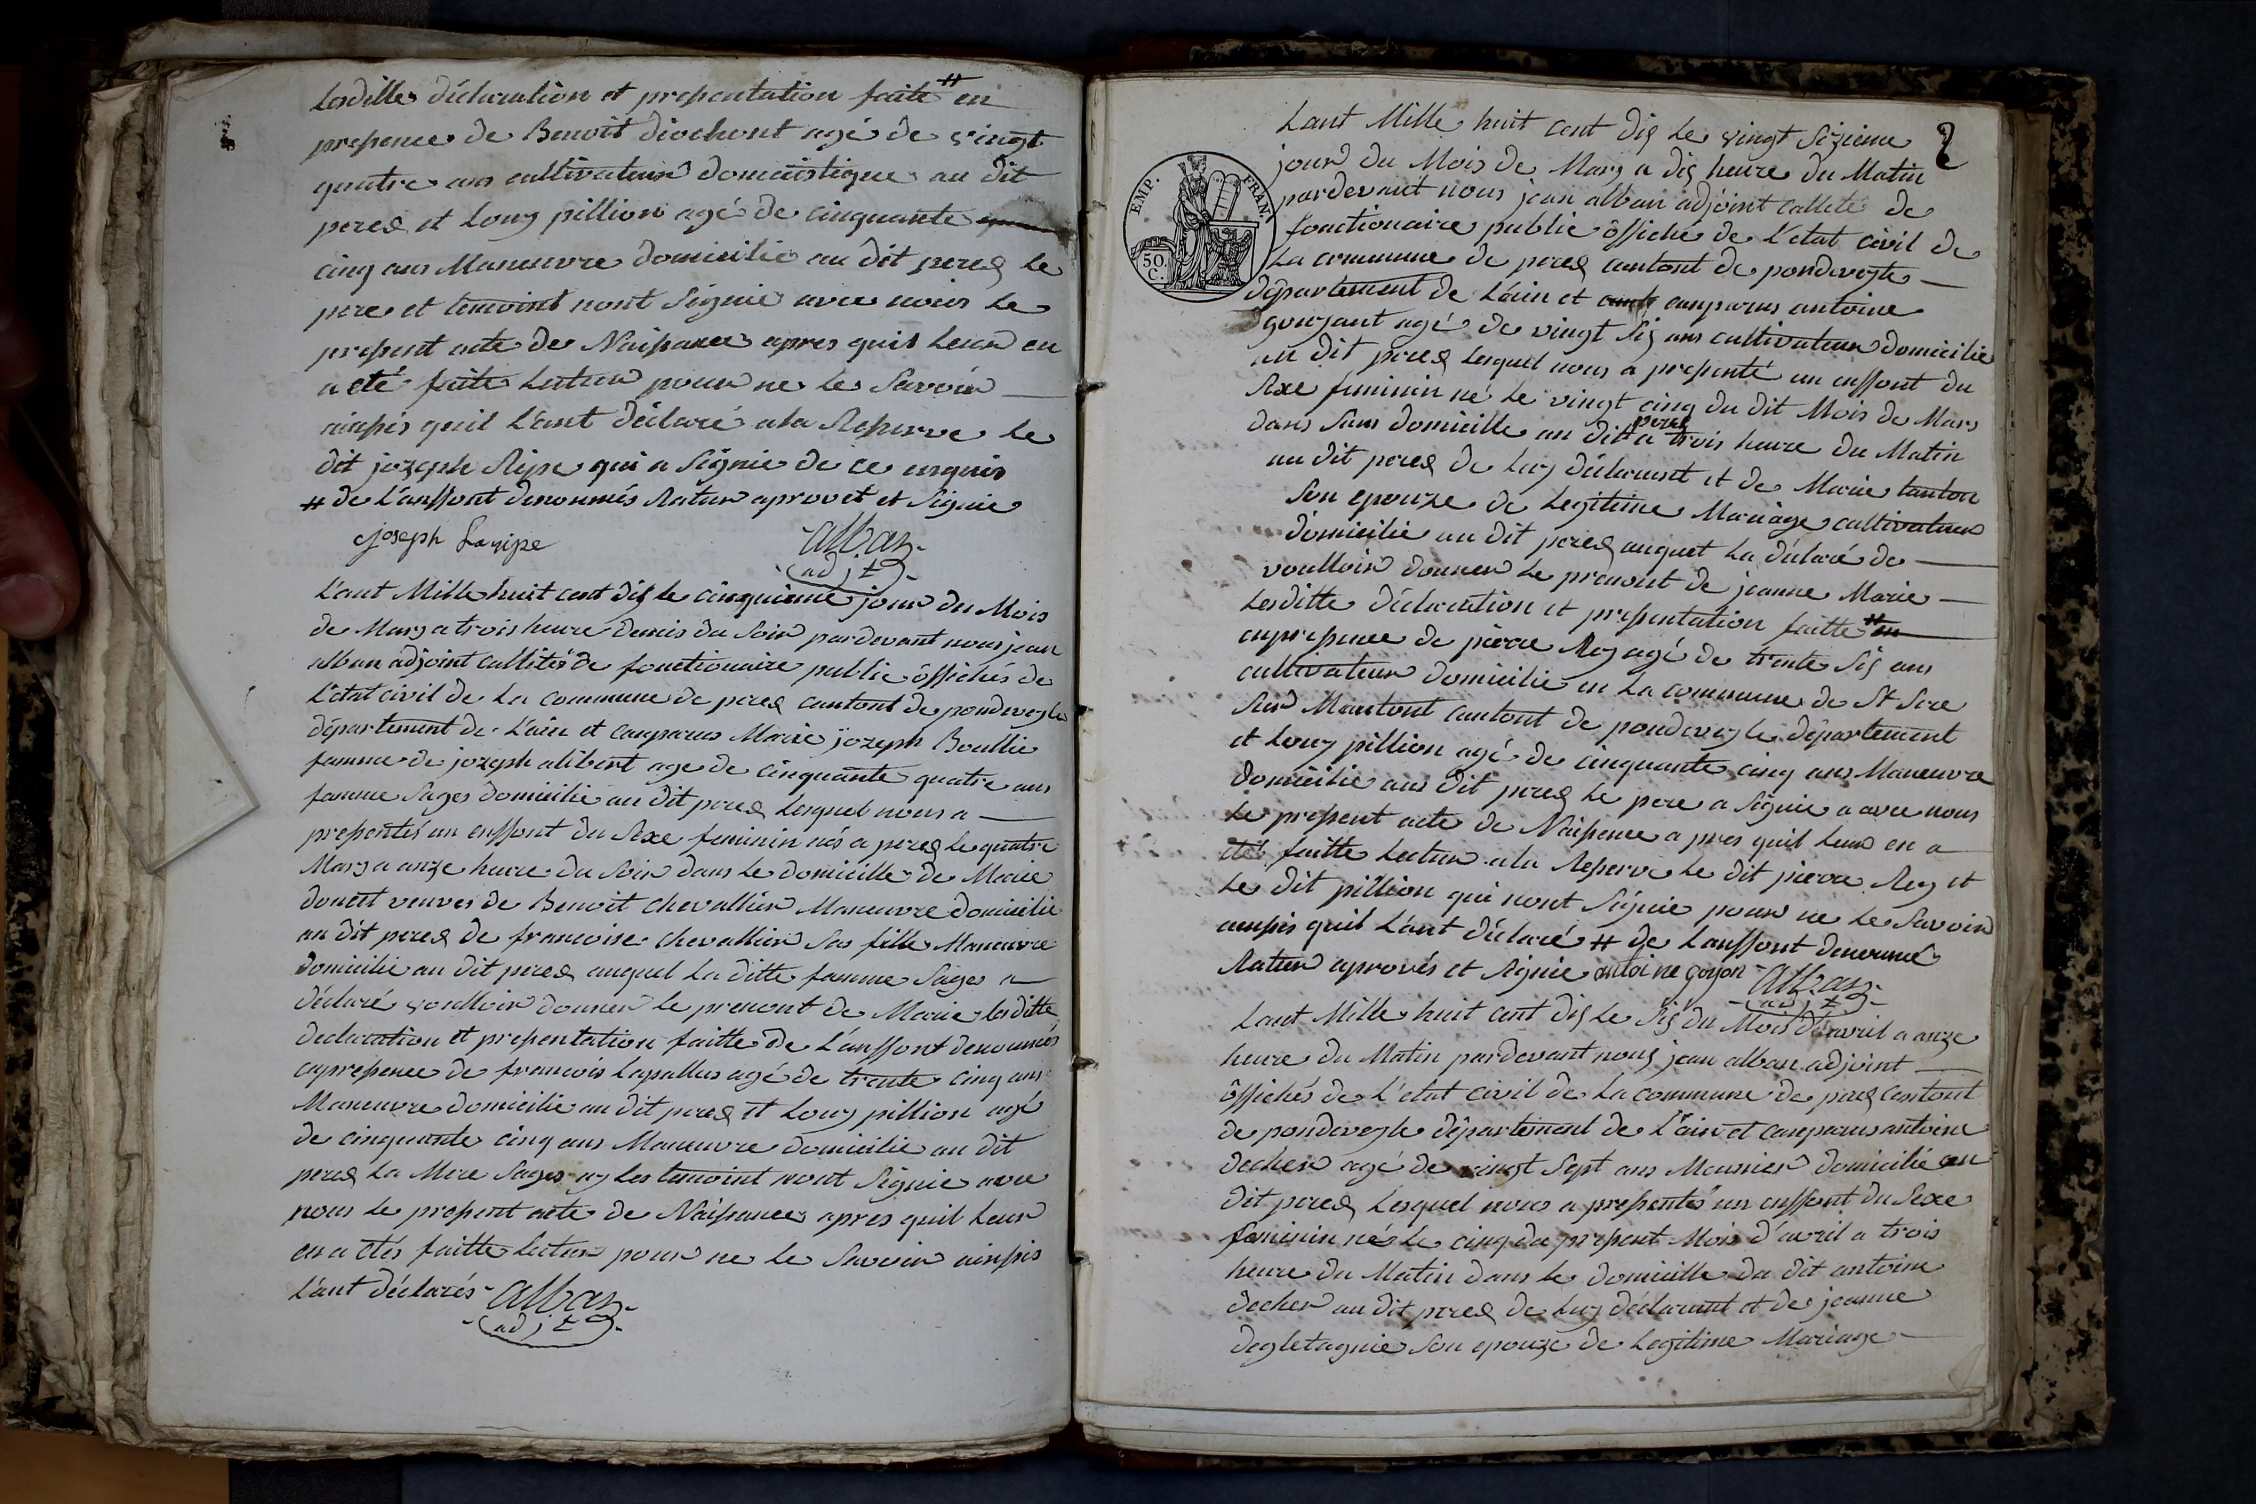 lesditte déclaration et presentation faite # en
presence de Benoit diochont agé de vingt
quatre ans cultivateur domeistique au dit
perex et Louy pillion agé de cinquante
cinq ans Maneuvre domicilié au dit perex le
pere et temoint nont Signie avec nous le
present acte de Naissance apres quil leur en
a eté faite lectur pour ne le Savoir
ainssis quil l'ant déclaré ala Reserve le
dit jozeph Ripe qui a Signie de ce enquis
# de l'anffont denommés Ratur aprovet et Signie
Joseph Laripe alban
adjt
L'ant Mille huit cent dix le cinquieme jour du Mois
de Mars a trois heure demis du Soir pardevant nous jean
alban adjoint callités de fonctionaire public offichés de
L'état civil de la commune de perex cantont de pondevesle
département de l'ain et conparus Marie jozeph Boullie
famme de jozeph alibert age de cinquante quatre ans
famme Sages domicilié au dit perex lesquel nous a
presentés un enffont du Sexe feminin nés a perex le quatre
Mars a anze heure du Soir dans le domicille de Marie
donett veuves de Benoit chevallier Maneuvre domicilié
au dit perex de francoise chevallier Sas fille Maneuvre
domicilié au dit perex auquel la ditte famme Sages a
déclaré voulloir donner le prenont de Marie lesditte
declaration et presentation faitte de l'anffont denommés
enpresence de francois lapallus agé de trente cinq ans
Maneuvre domicilié au dit perex et Louy pillion agé
de cinquante cinq ans Maneuvre domicilié au dit
perex la Mere Sages ny les temoint nont Signie avec
nous le present acte de Naissance apres quil leur
en a étés faitte lectur pour ne le Savoir ainssis
l'ant déclarés alban
adjt
2
Lant Mille huit cent dix le vingt Sizieme
jour du Mois de Mars a dix heure du Matin
pardevant nous jean alban adjoint callité de
fonctionaire public offiché de l'état civil de
EMP. FRAN.
50 C.
La commune de perex cantont de pondevesle
département de l'ain et conparus antoine
gonjant agé de vingt Six ans cultivateur domicilié
au dit perex lesquel nous a presenté un enffont du
Sexe féminin né le vingt cinq du dit Mois de Mars
dans Sans domicille au dit perex a trois heure du Matin
au dit perex de luy déclarant et de Marie tanton
Son epouze de legitime Mariage cultivateur
domicilié au dit perex auquel la déclaré de
voulloir donner le prenont de jeanne Marie
lesditte déclaration et presentation faitte #
enpresence de pierre Rey agé de trente Six ans
cultivateur domicilié en la commune de St Sire
Sur Mantont cantont de pondevesle département
et Louy pillion agé de cinquante cinq ans Maneuvre
domicilié aus dit perex le pere a Signie a avec nous
le present acte de Naissance a pres quil leur en a
étés faitte lectur ala Reserve le dit pierre Rey et
le dit pillion qui nont Signie pour ne le Savoir
ainssis quil l'ant déclaré # de l'anffont denommé
Ratur aprovés et Signie antoine goyon alban
adjt
Lant Mille huit cent dix le Six du Mois d'avril a anze
heure du Matin pardevant nous jean alban adjoint
offichés de l'état civil de la commune de perex cantont
de pondevesle département de l'ain et conparus antoine
decher agé de vingt Sept ans Meunier domicilié au
dit perex lesquel nous a presentés un enffont du Sexe
feminin nés le cinq du present Mois d'avril a trois
heure du Matin dans le domicille du dit antoine
decher au dit perex de luy déclarant et de jeanne
degletagnie Son epouze de legitime Mariage